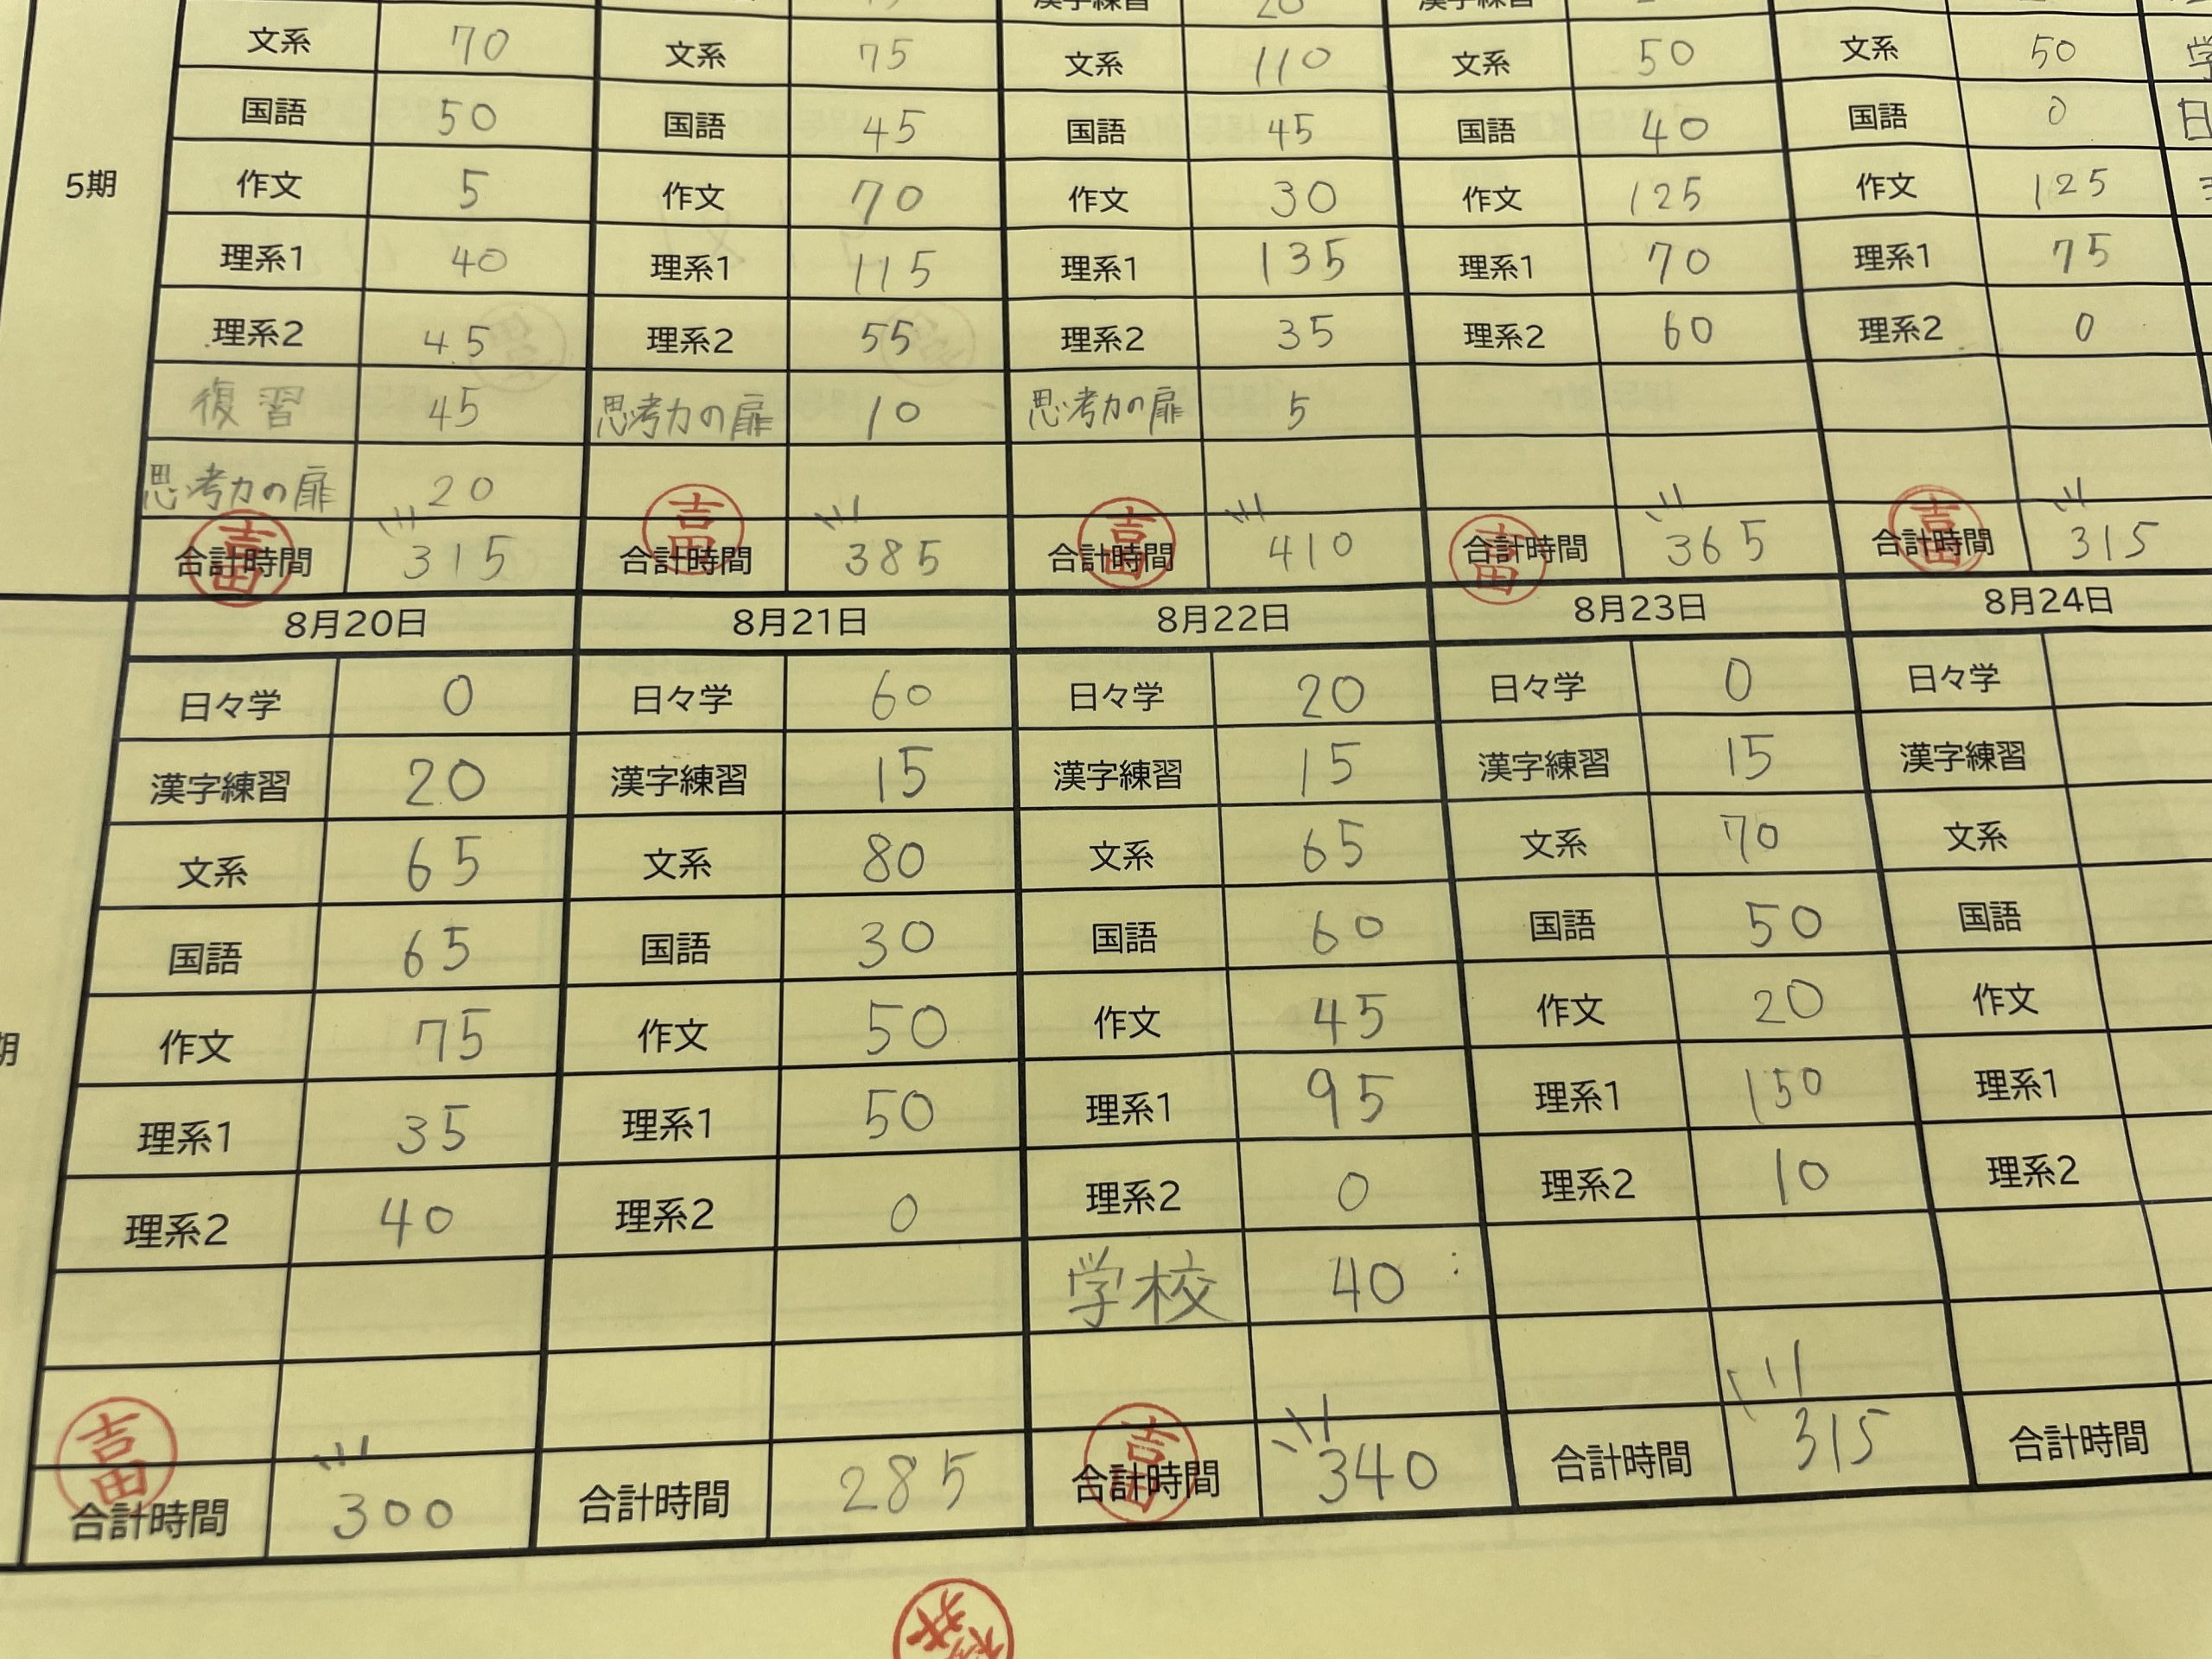 漢字練習 20 漢字練習
文系 70 文系 75 文系 110 文系 50 文系 50 学
国語 50 国語 45 国語 45 国語 40 国語 0 日
5期 作文 5 作文 70 作文 30 作文 125 作文 125
理系1 40 理系1 115 理系1 135 理系1 70 理系1 75
理系2 45 理系2 55 理系2 35 理系2 60 理系2 0
復習 45 思考力の扉 10 思考力の扉 5
思考力の扉 20
合計時間 315 合計時間 385 合計時間 410 合計時間 365 合計時間 315
8月20日 8月21日 8月22日 8月23日 8月24日
日々学 0 日々学 60 日々学 20 日々学 0 日々学
漢字練習 20 漢字練習 15 漢字練習 15 漢字練習 15 漢字練習
文系 65 文系 80 文系 65 文系 70 文系
国語 65 国語 30 国語 60 国語 50 国語
期 作文 75 作文 50 作文 45 作文 20 作文
理系1 35 理系1 50 理系1 95 理系1 150 理系1
理系2 40 理系2 0 理系2 0 理系2 10 理系2
学校 40
合計時間 300 合計時間 285 合計時間 340 合計時間 315 合計時間